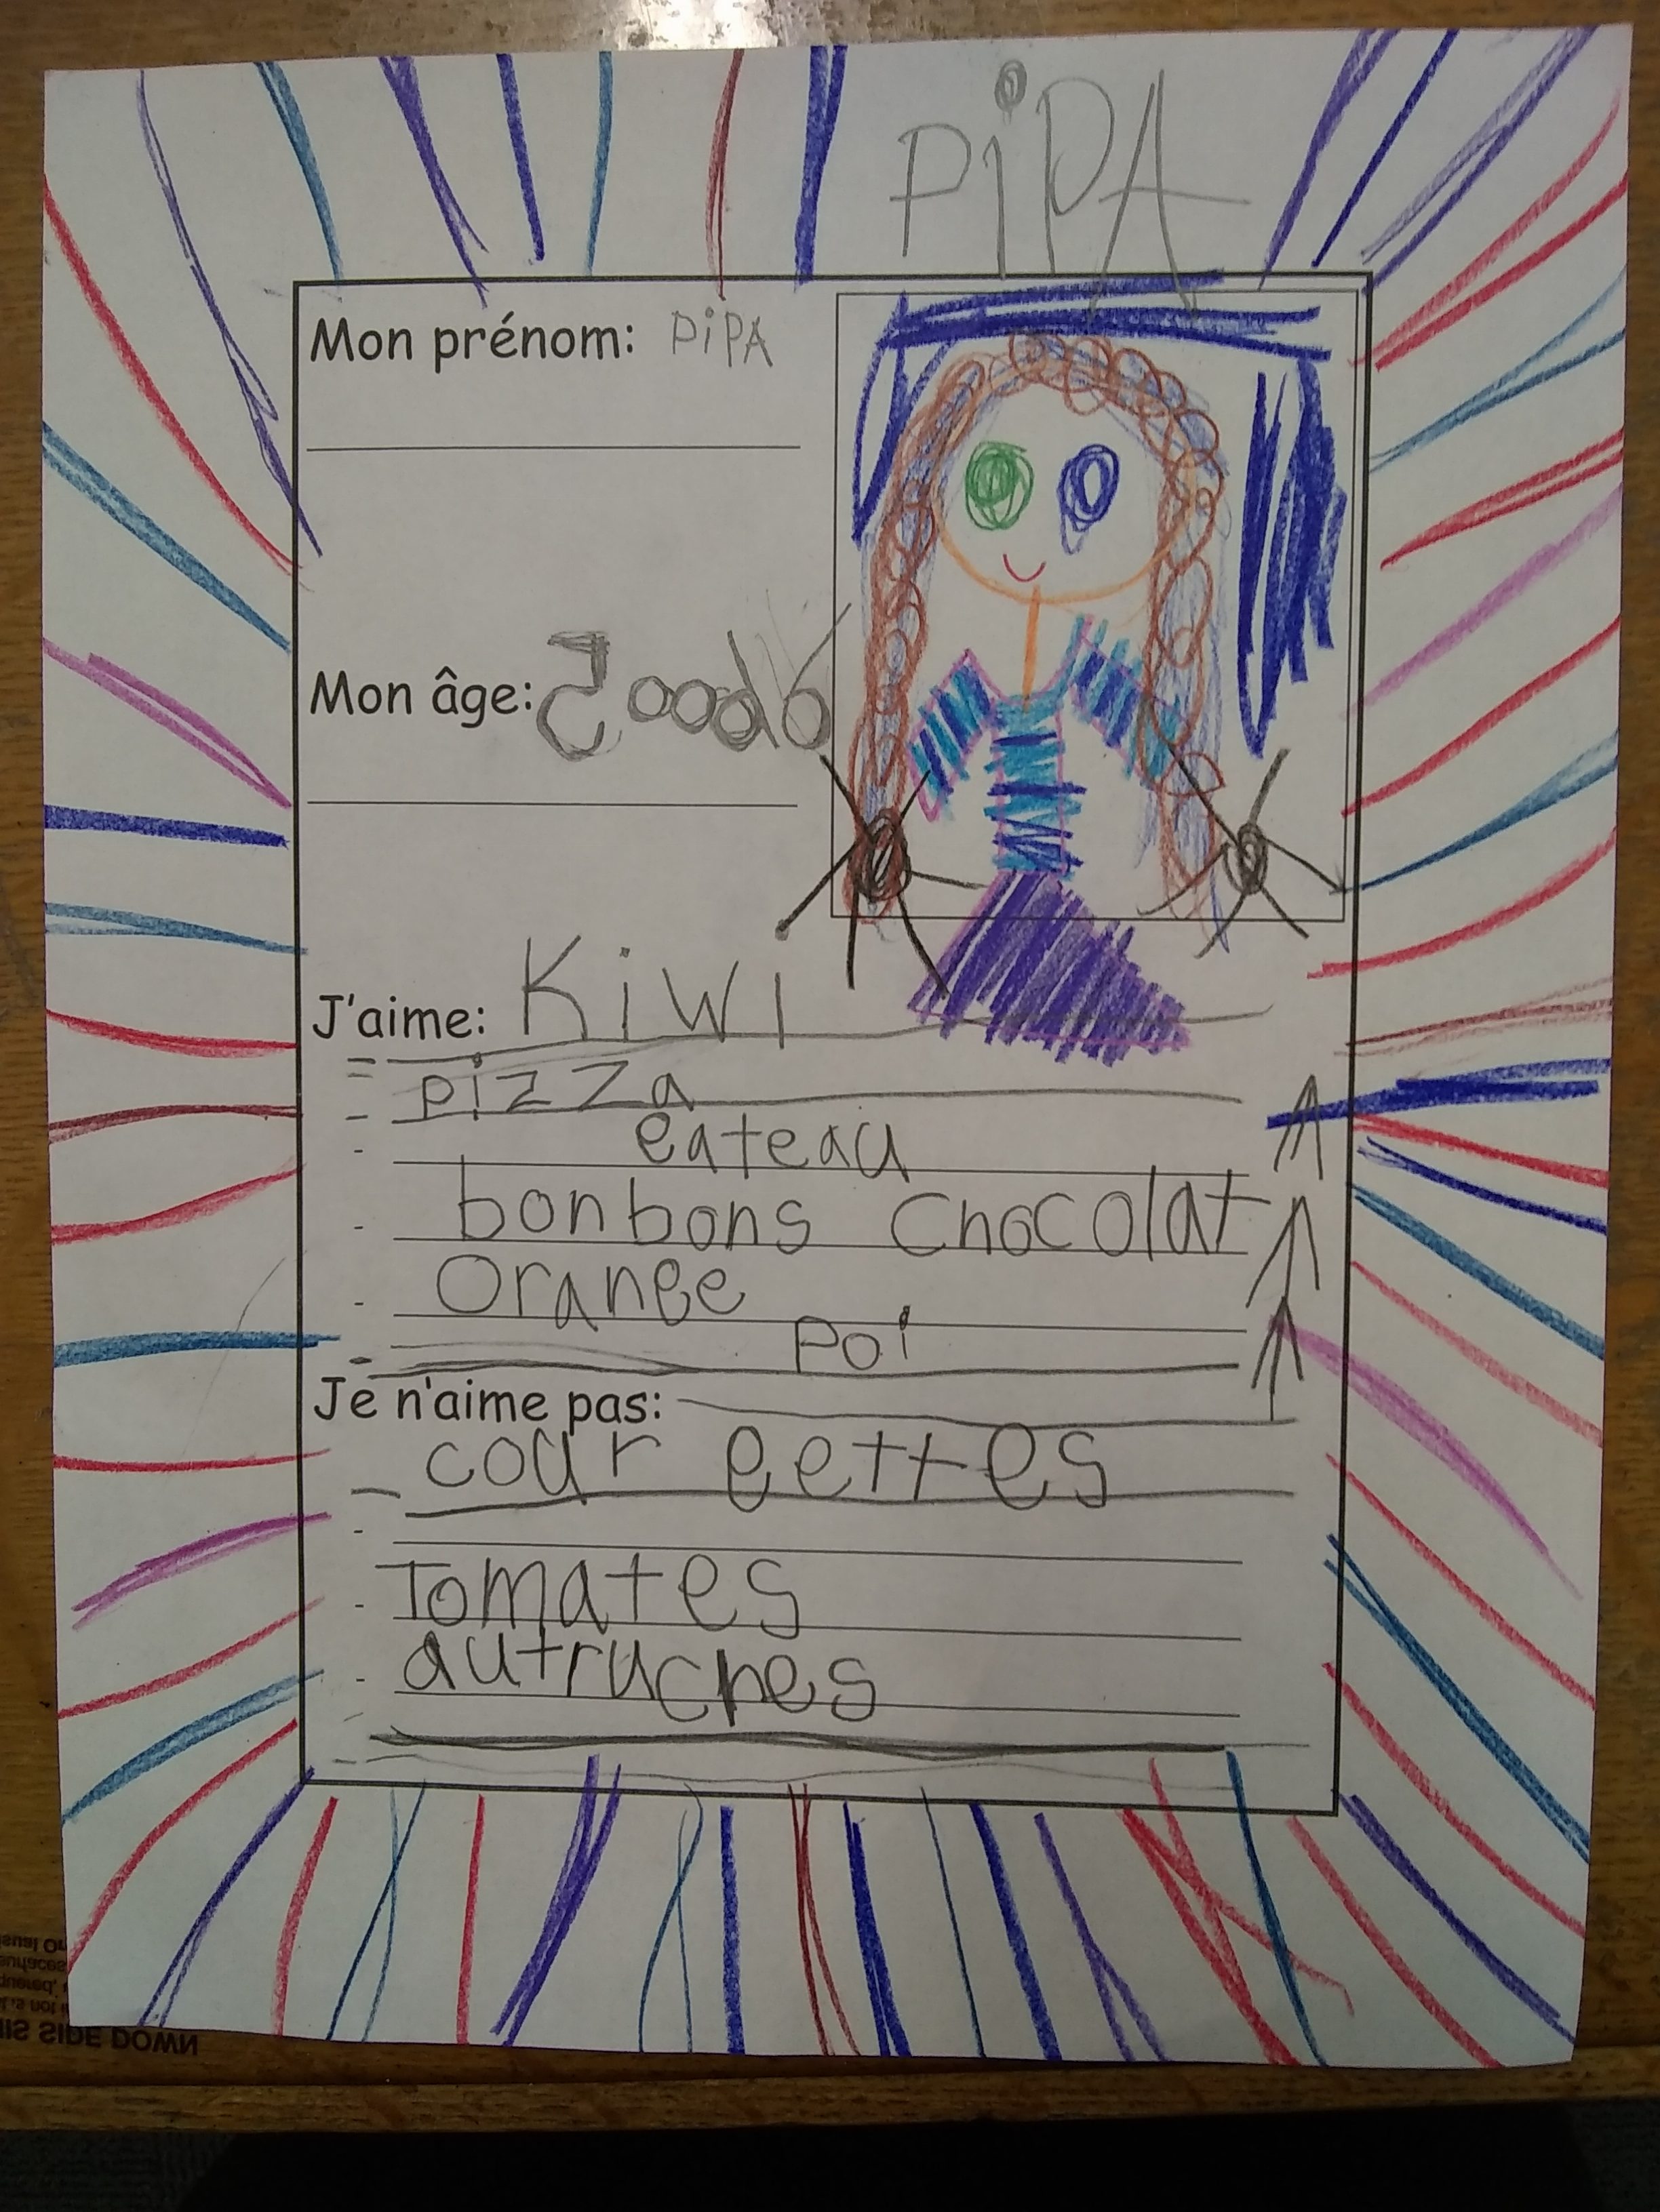 PiPA
Mon prénom: PiPA
Mon âge:
J'aime: Kiwi
pizza
eateau
bonbons chocolat
orange
poi
Je n'aime pas:
cour gettes
Tomates
autruches
IIS SIDE DOWN